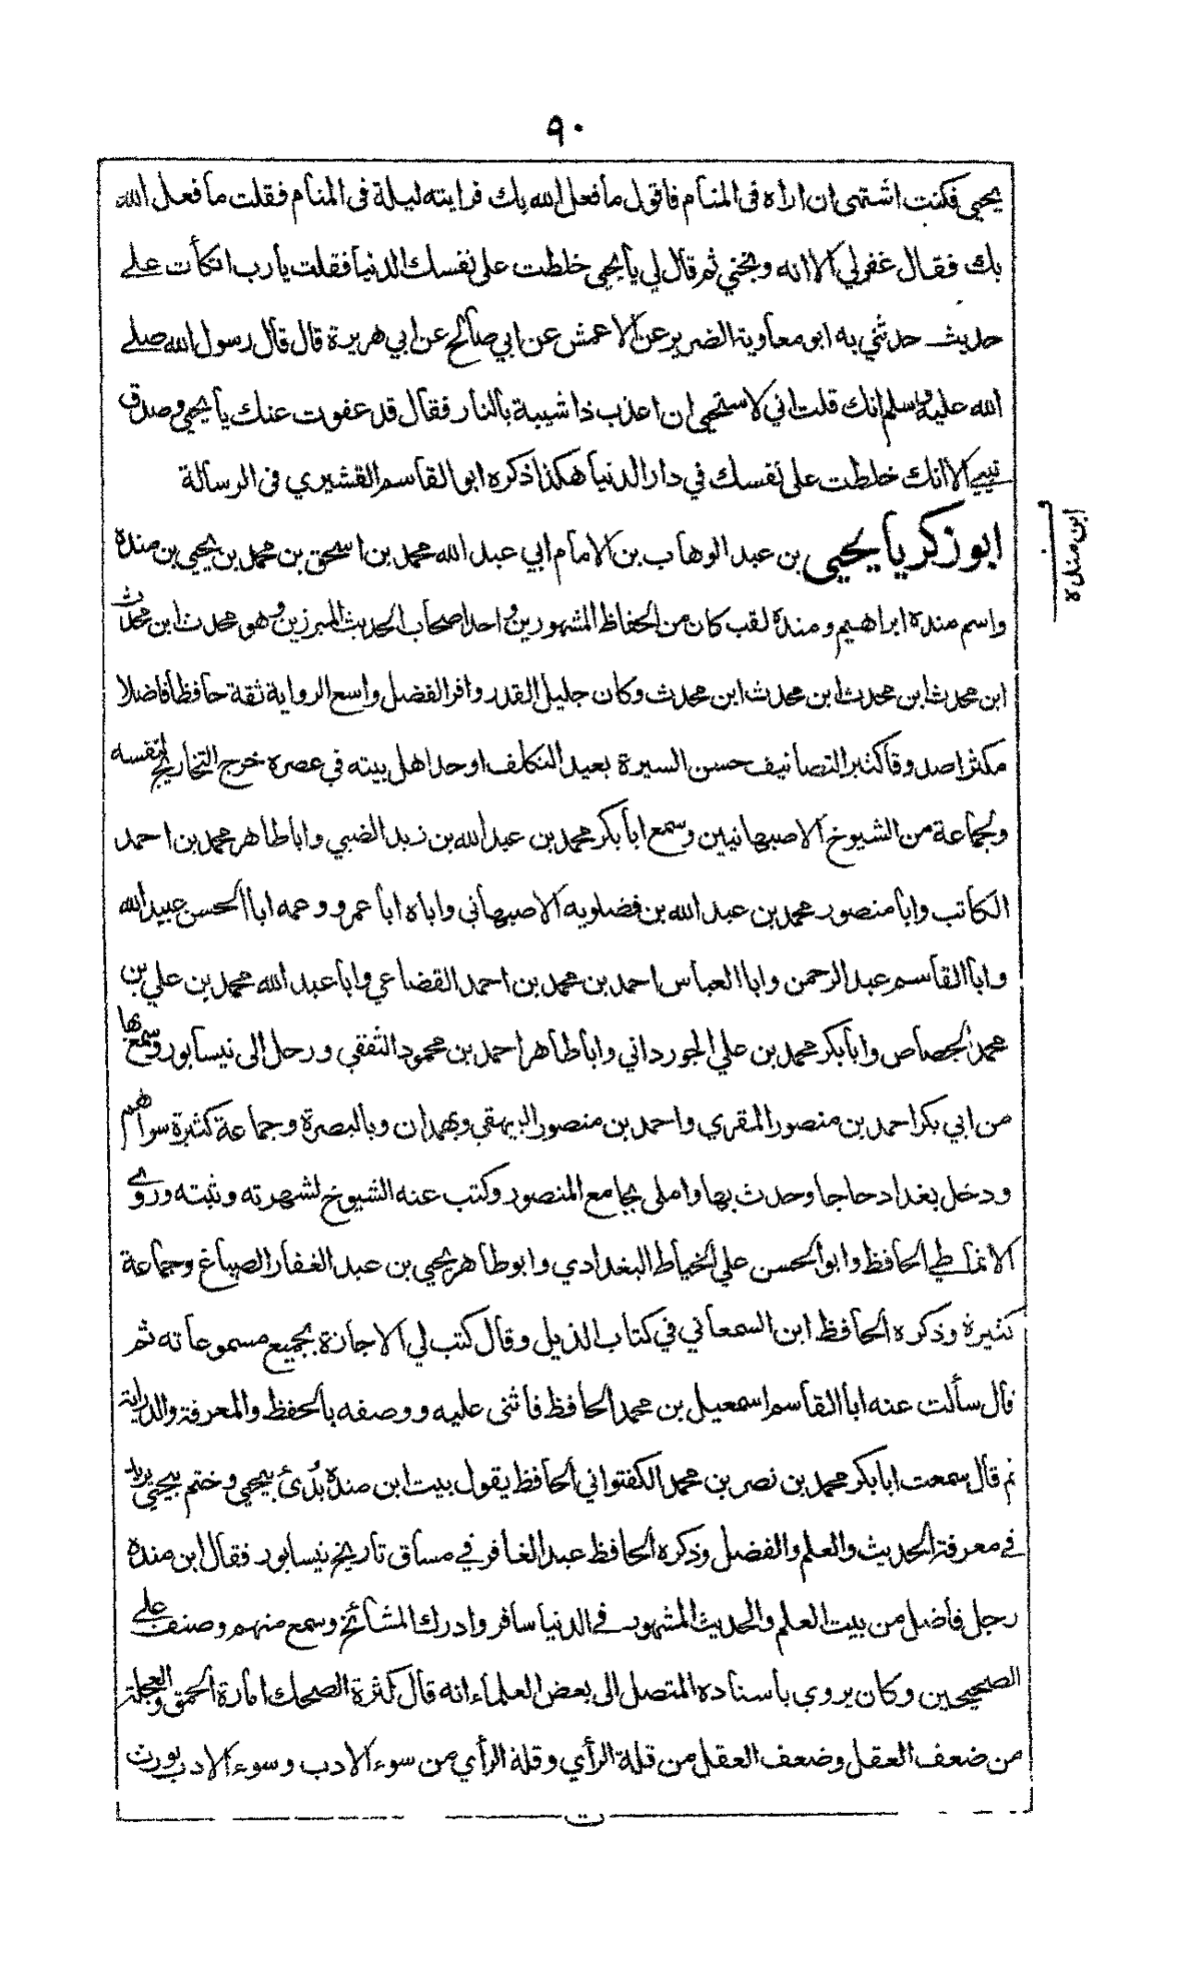 ٩٠
يحيى فكنت اشتهى ان اراه فى المنام فاقول ما فعل الله بك فرايته ليلة فى المنام فقلت ما فعل الله
بك فقال غفر لي الا انه وبخني ثم قال لي يا يحيى خلطت على نفسك الدنيا فقلت يارب اتكأت على
حديث حدثني به ابو معاوية الضرير عن الاعمش عن ابي صالح عن ابي هريرة قال قال رسول الله صلى
الله عليه وسلم انك قلت اني لاستحيى ان اعذب ذا شيبة بالنار فقال قد عفوت عنك يا يحيى وصدق
نبيي الا انك خلطت على نفسك في دار الدنيا هكذا ذكره ابو القاسم القشيري فى الرسالة
ابو زكريا يحيى بن عبد الوهاب بن الامام ابي عبد الله محمد بن اسحق بن محمد بن يحيى بن مندة
ابن مندة
واسم مندة ابراهيم ومندة لقب كان من الحفاظ المشهورين واحد اصحاب الحديث المبرزين وهو محدث ابن محدث
ابن محدث ابن محدث ابن محدث ابن محدث وكان جليل القدر وافر الفضل واسع الرواية ثقة حافظا فاضلا
مكثرا صدوقا كثير التصانيف حسن السيرة بعيد التكلف اوحد اهل بيته في عصره خرج التخاريج لنفسه
ولجماعة من الشيوخ الاصبهانيين وسمع ابا بكر محمد بن عبد الله بن زيد الضبي وابا طاهر محمد بن احمد
الكاتب وابا منصور محمد بن عبد الله بن فضلويه الاصبهاني واباه ابا عمرو وعمه ابا الحسن عبيد الله
وابا القاسم عبد الرحمن وابا العباس احمد بن محمد بن احمد القضاعي وابا عبد الله محمد بن علي بن
محمد الجصاص وابا بكر محمد بن علي الجورداني وابا طاهر احمد بن محمود الثقفي ورحل الى نيسابور وسمع بها
من ابي بكر احمد بن منصور المقري واحمد بن منصور البيهقي وبهمدان وبالبصرة وجماعة كثيرة سواهم
ودخل بغداد حاجا وحدث بها واملى بجامع المنصور وكتب عنه الشيوخ لشهرته وثبته وروى
الانماطي الحافظ وابو الحسن علي الخياط البغدادي وابو طاهر يحيى بن عبد الغفار الصباغ وجماعة
كثيرة وذكره الحافظ ابن السمعاني في كتاب الذيل وقال كتب لي الاجازة بجميع مسموعاته ثم
قال سألت عنه ابا القاسم اسمعيل بن محمد الحافظ فاثنى عليه ووصفه بالحفظ والمعرفة والدراية
ثم قال سمعت ابا بكر محمد بن نصر بن محمد الكفتواني الحافظ يقول بيت ابن مندة بُدئ بيحيى وختم بيحيى يريد
في معرفة الحديث والعلم والفضل وذكره الحافظ عبد الغافر في مساق تاريخ نيسابور فقال ابن مندة
رجل فاضل من بيت العلم والحديث المشهور فى الدنيا سافر وادرك المشائخ وسمع منهم وصنف على
الصحيحين وكان يروي باسناده المتصل الى بعض العلماء انه قال كثرة الضحك امارة الحمق والعجلة
من ضعف العقل وضعف العقل من قلة الرأي وقلة الرأي من سوء الادب وسوء الادب يورث
ت